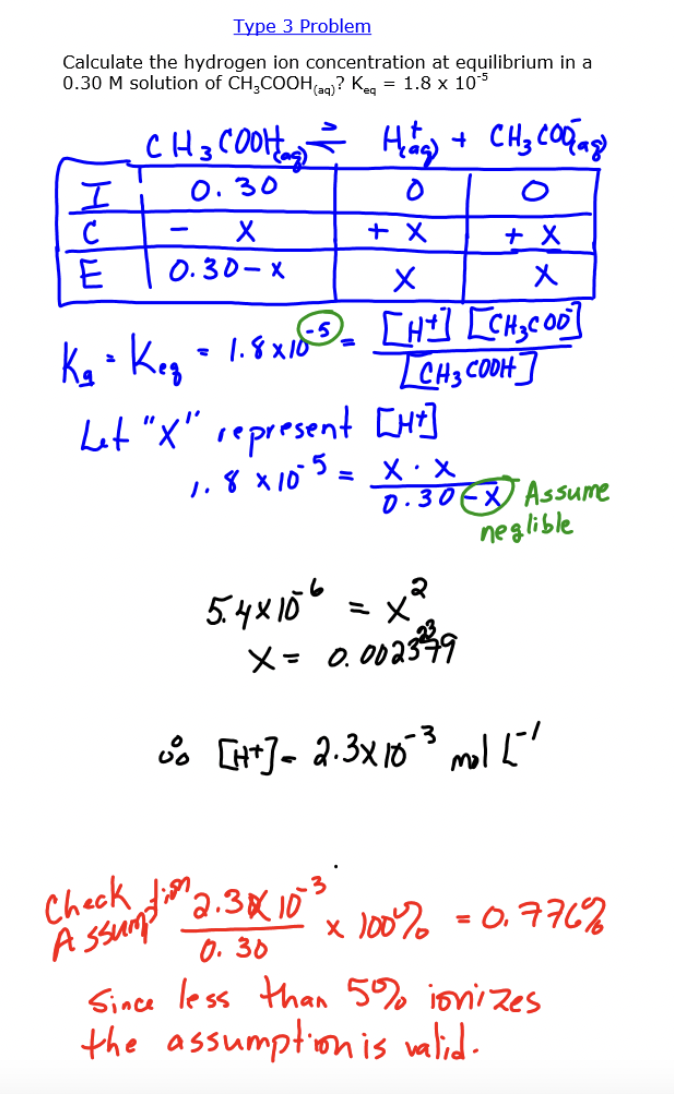 Type 3 Problem
Calculate the hydrogen ion concentration at equilibrium in a
0.30 M solution of CH₃COOH(aq)? Keq = 1.8 x 10⁻⁵
CH₃COOH(aq) ⇌ H⁺(aq) + CH₃COO⁻(aq)
I 0.30 0 0
C - x + x + x
E 0.30 - x x x
Ka = Keq = 1.8 x 10⁻⁵ = [H⁺] [CH₃COO⁻]
[CH₃COOH]
Let "x" represent [H⁺]
1.8 x 10⁻⁵ = x · x
0.30 - x Assume
neglible
5.4 x 10⁻⁶ = x²
x = 0.0023
∴ [H⁺] = 2.3 x 10⁻³ mol L⁻¹
Check
Assumption 2.3 x 10⁻³ x 100% = 0.776%
0.30
Since less than 5% ionizes
the assumption is valid.